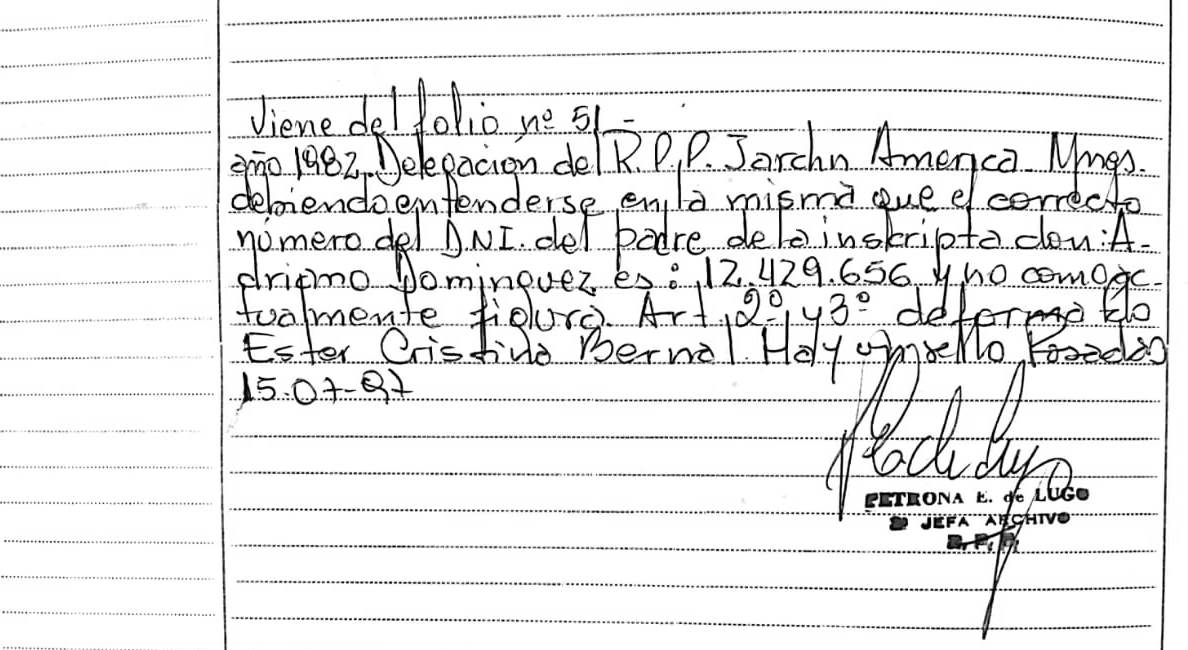 Viene del folio nº 51 -
año 1982. Delegación del R.P.P. Jardín America Mnes.
debiendo entenderse en la misma que el correcto
número del D.N.I. del padre de la inskripta don: A-
driano Dominguez es: 12.429.656 y no como ac-
tualmente figura. Art. 2º y 3º de forma. Fdo
Ester Cristina Bernal. Hay un sello Posadas
15-07-97
PETRONA E. de LUGO
JEFA ARCHIVO
R.P.P.